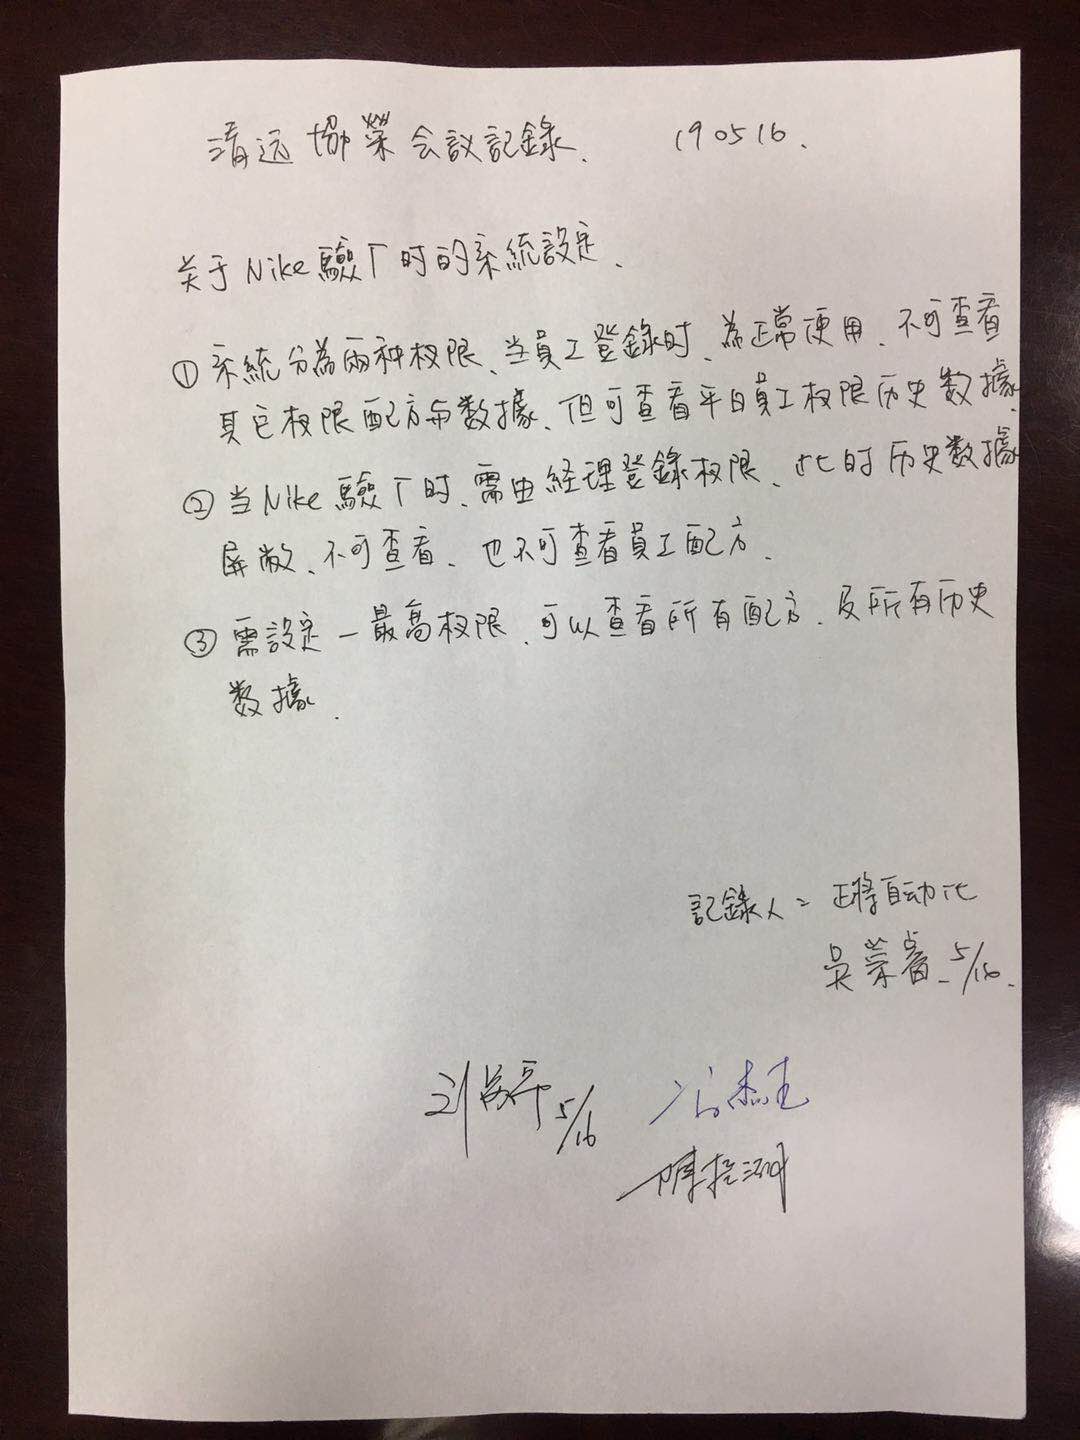 清远協榮会议記錄. 190516.
关于Nike驗厂时的系統設定.
① 系統分為兩种权限、当員工登錄时、為正常使用、不可查看
其它权限配方与数據、但可查看平日員工权限历史数據.
② 当Nike驗厂时、需由経理登錄权限、此时历史数據
屏敝、不可查看、也不可查看員工配方.
③ 需設定一最高权限、可以查看所有配方、及所有历史
数據.
記錄人= 正將自动化
吳榮 5/16.
5/16